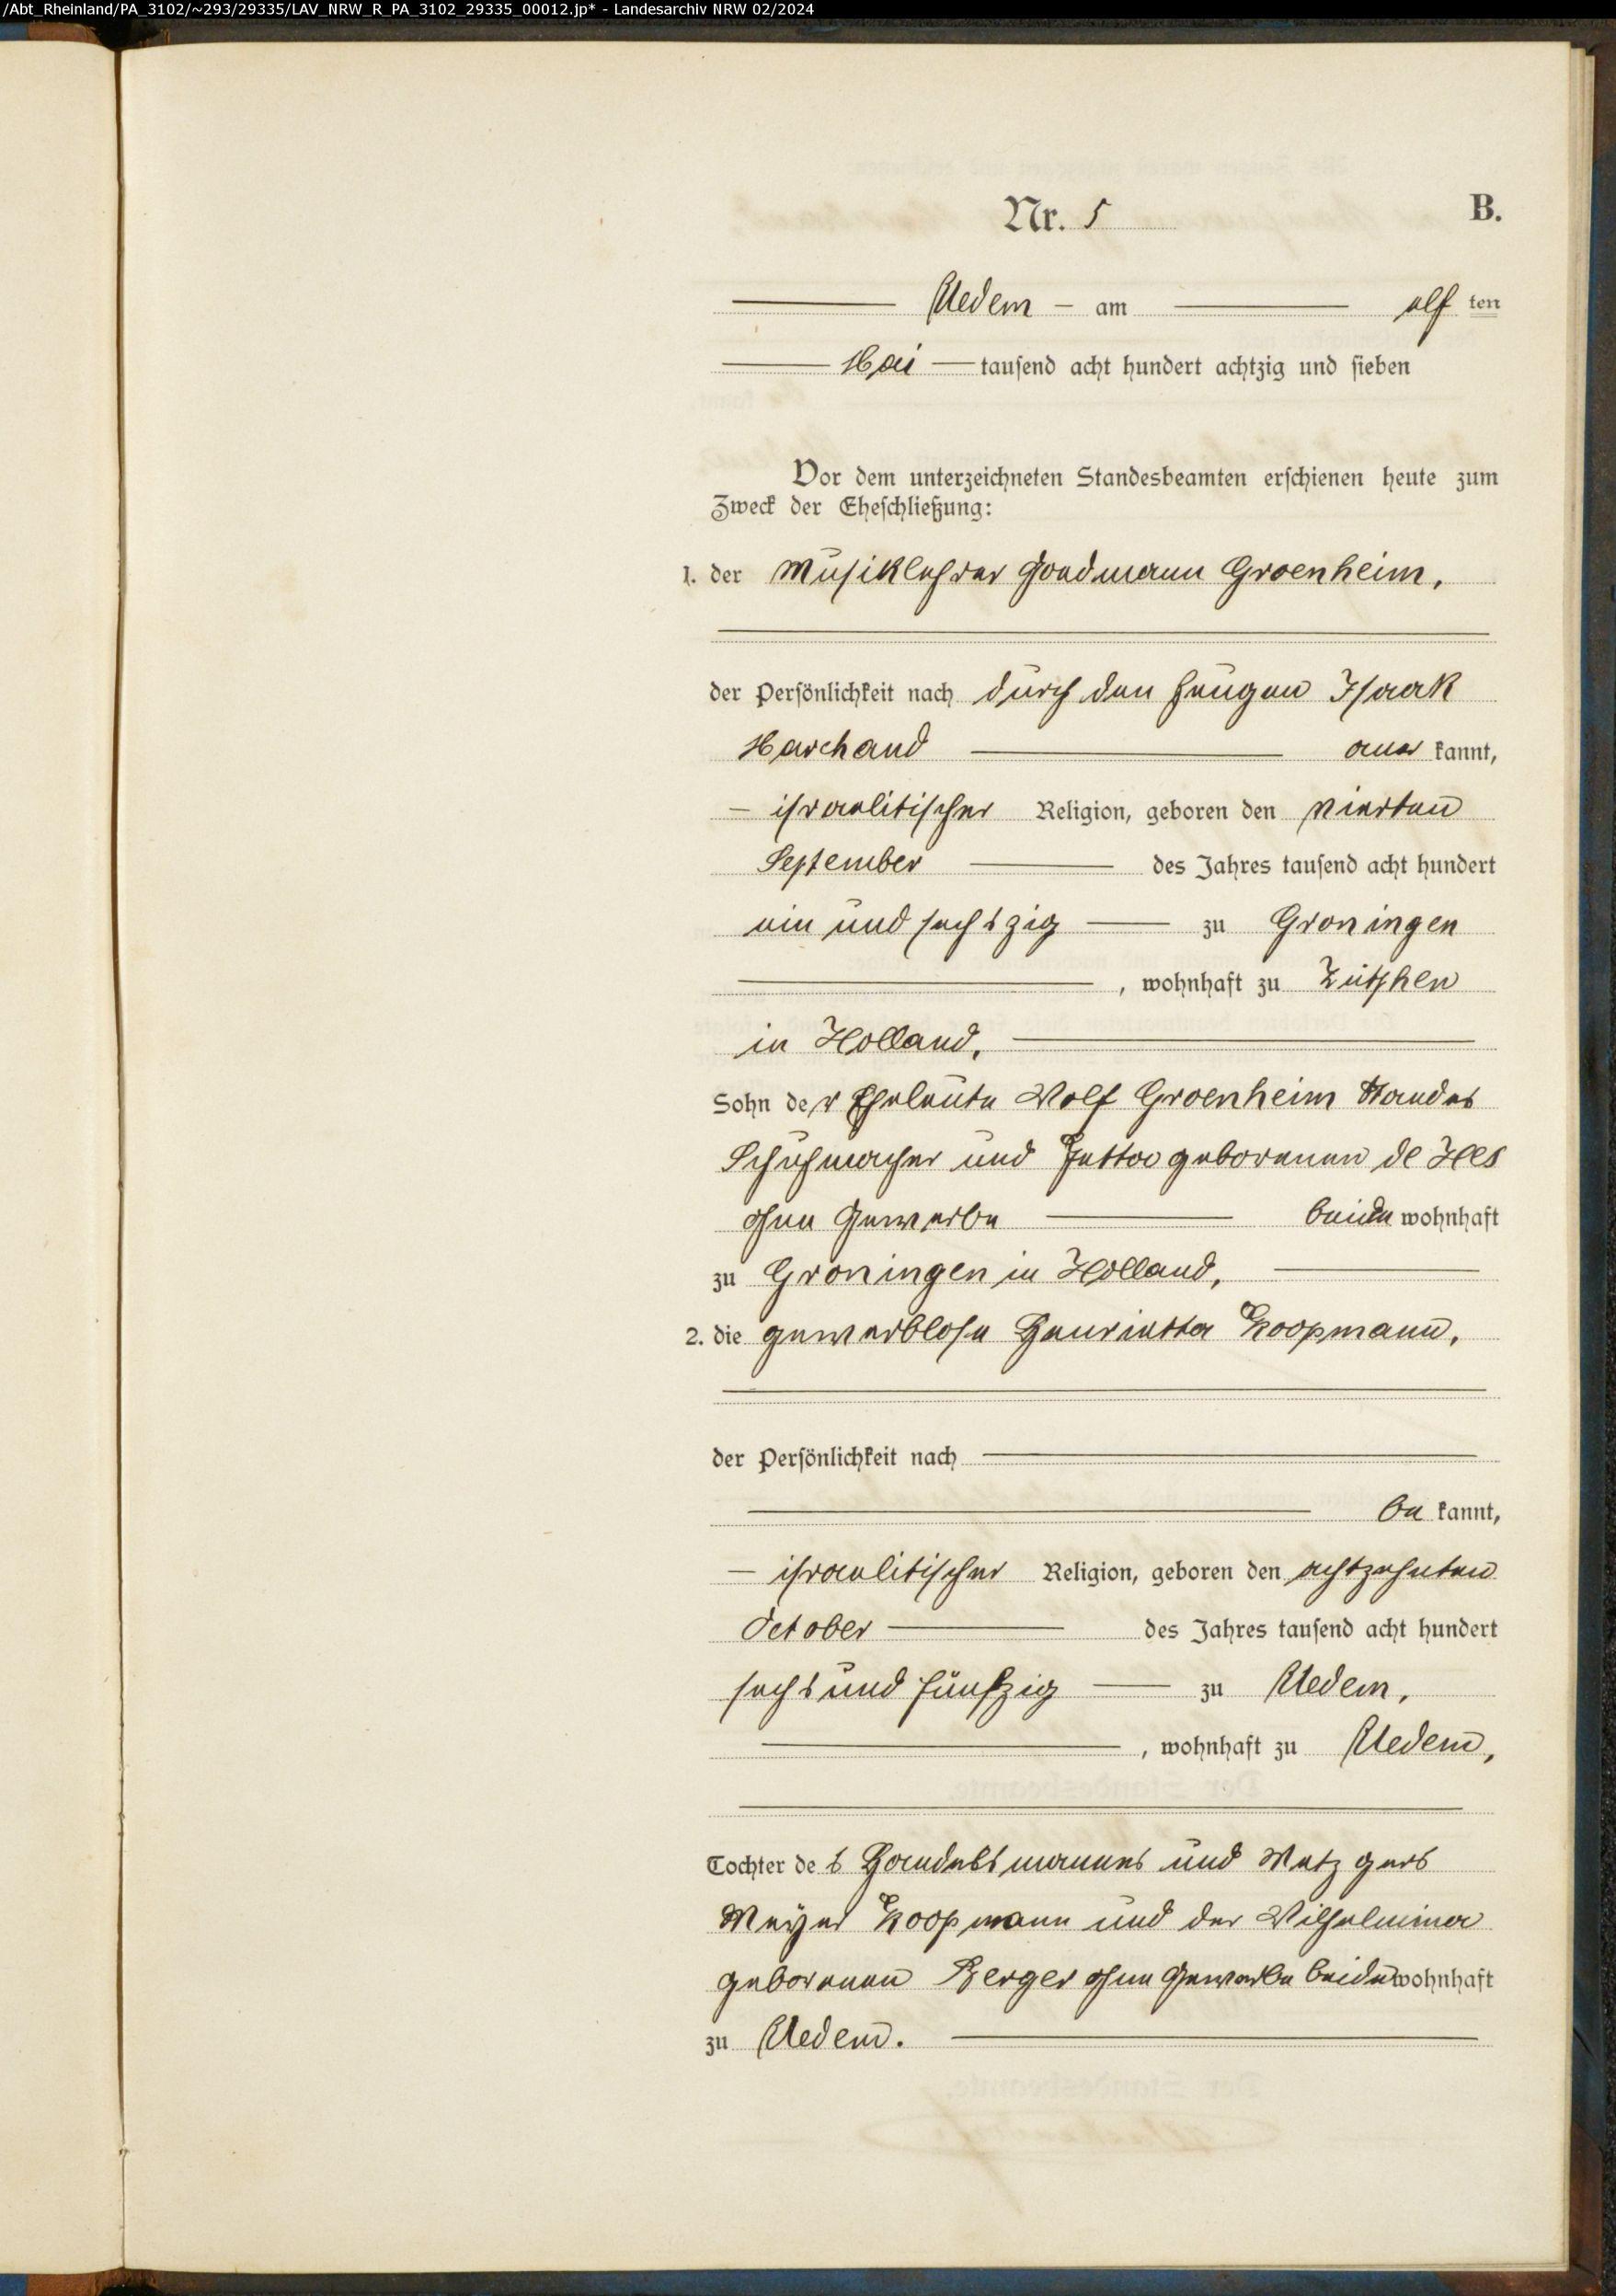 /Abt_Rheinland/PA_3102/~293/29335/LAV_NRW_R_PA_3102_29335_00012.jp* - Landesarchiv NRW 02/2024
Nr. 5 B.
Uedem – am elf ten
Mai tausend acht hundert achtzig und sieben
Vor dem unterzeichneten Standesbeamten erschienen heute zum
Zweck der Eheschließung:
1. der Musiklehrer Goedmann Groenheim,
der Persönlichkeit nach durch den Zeugen Isaak
Marchand aner kannt,
– israelitischer Religion, geboren den vierten
September des Jahres tausend acht hundert
ein und sechszig zu Groningen
, wohnhaft zu Zütphen
in Holland,
Sohn der Eheleute Wolf Groenheim Standes
Schuhmacher und Jetta geborenen de Hes
ohne Gewerbe beide wohnhaft
zu Groningen in Holland,
2. die gewerblose Henrietta Koopmann,
der Persönlichkeit nach
be kannt,
– israelitischer Religion, geboren den achtzehnten
October des Jahres tausend acht hundert
sechs und fünfzig zu Uedem,
, wohnhaft zu Uedem,
Tochter des Handelsmannes und Metzgers
Meyer Koopmann und der Wilhelmina
geborenen Berger ohne Gewerbe beide wohnhaft
zu Uedem.